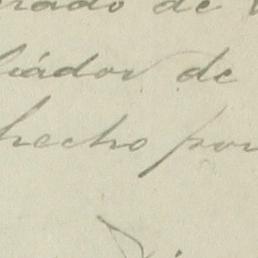 rado de
iador de
hecho por